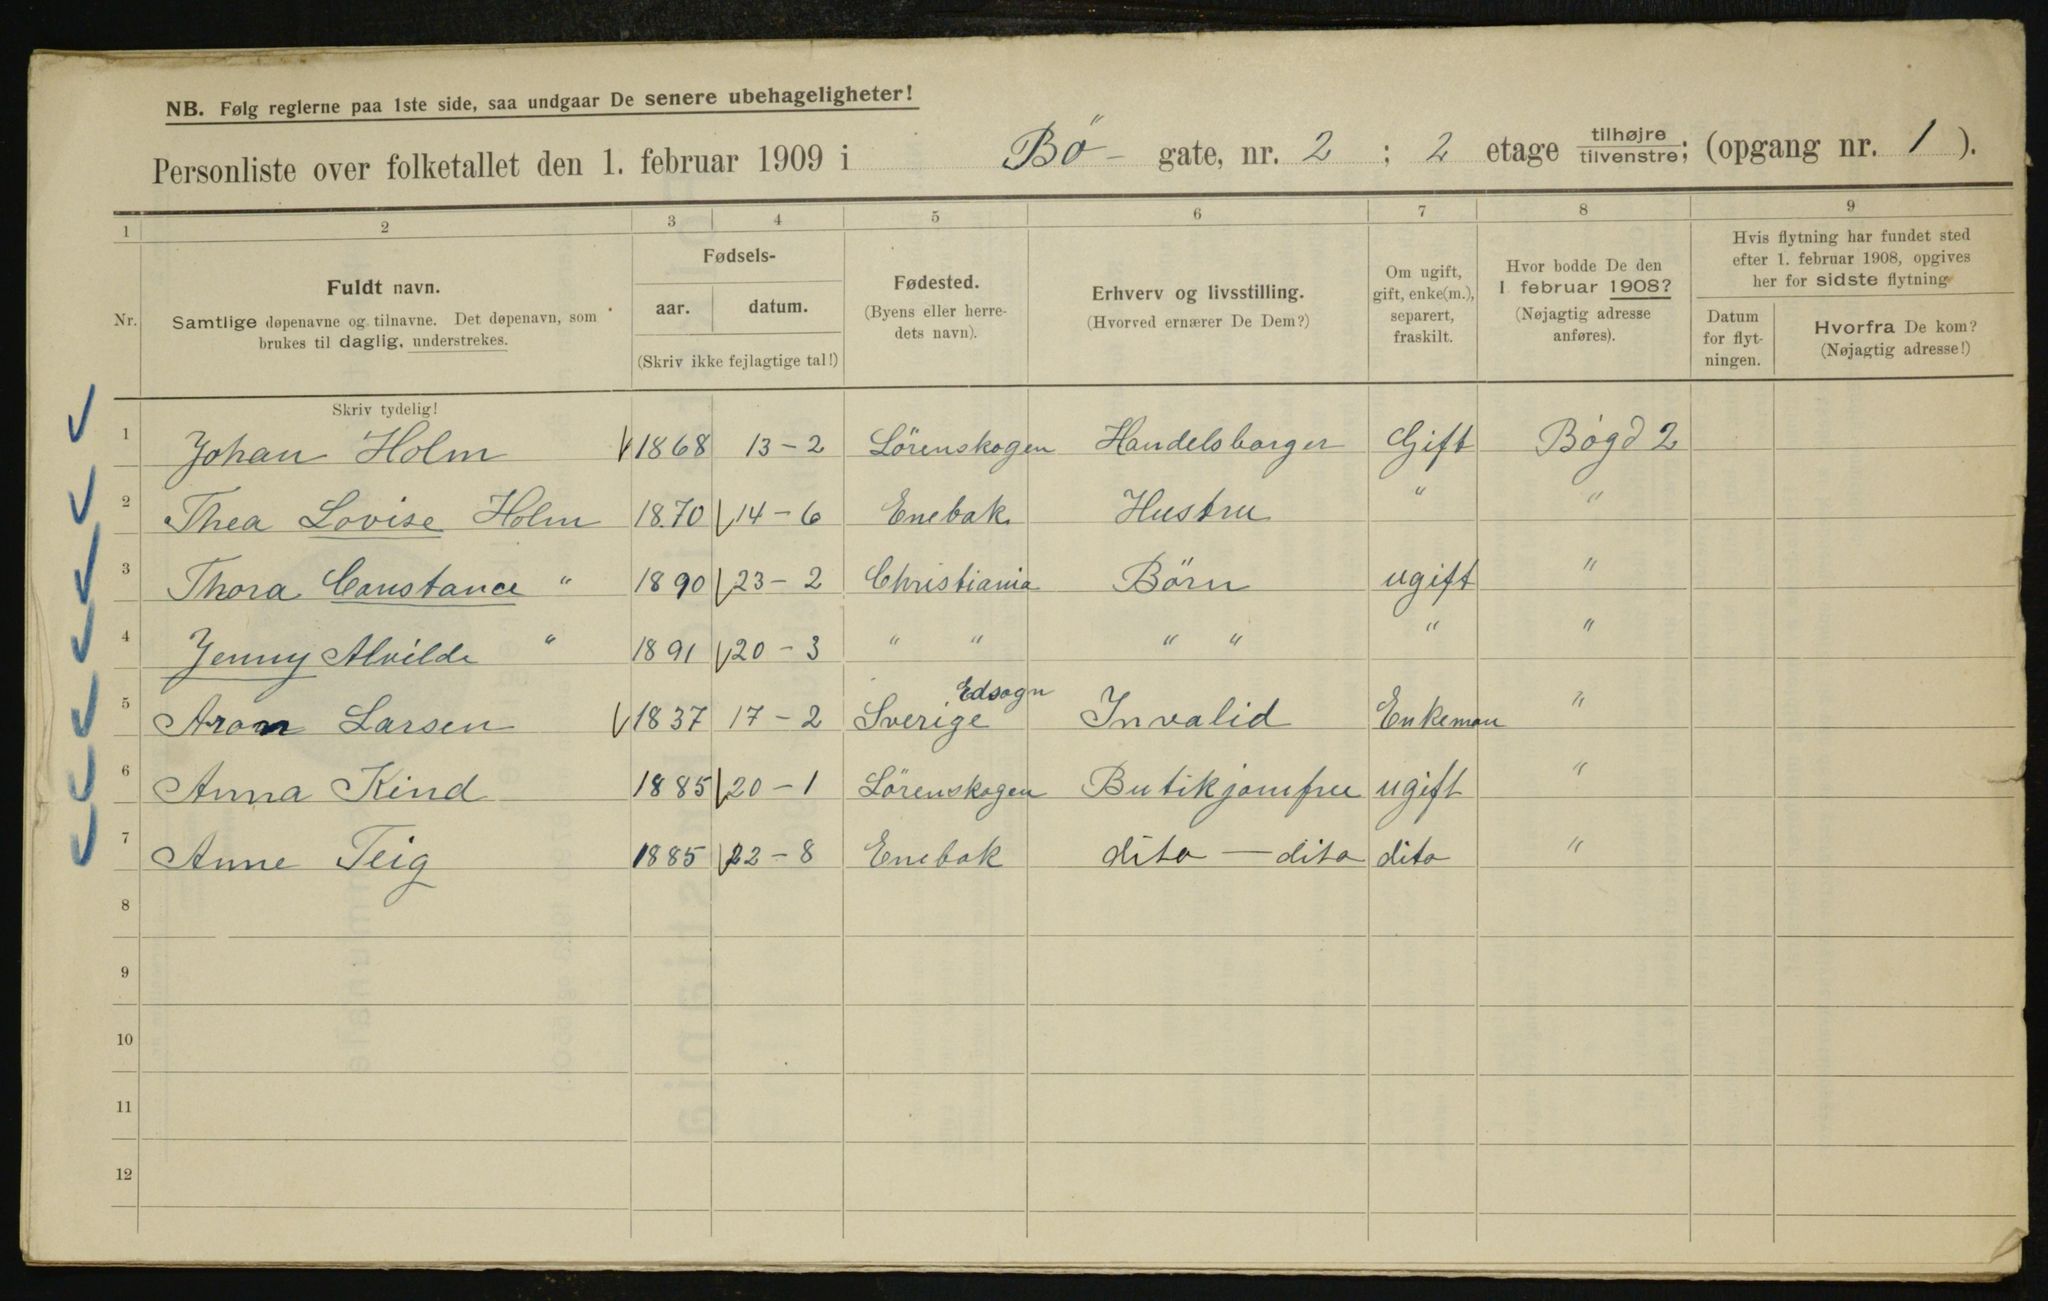 NB. Følg reglerne paa 1ste side, saa undgaar De senere ubehageligheter!
Personliste over folketallet den 1. februar 1909 i Bö- gate, nr. 2 ; 2 etage tilhøjre/tilvenstre; (opgang nr. 1 ).
1 2 3 4 5 6 7 8 9
Nr.
Fuldt navn.
Samtlige døpenavne og tilnavne. Det døpenavn, som
brukes til daglig, understrekes.
Fødsels-
aar. datum.
(Skriv ikke fejlagtige tal!)
Fødested.
(Byens eller herre-
dets navn).
Erhverv og livsstilling.
(Hvorved ernærer De Dem?)
Om ugift,
gift, enke(m.),
separert,
fraskilt.
Hvor bodde De den
1 februar 1908?
(Nøjagtig adresse
anføres).
Hvis flytning har fundet sted
efter 1. februar 1908, opgives
her for sidste flytning
Datum
for flyt-
ningen.
Hvorfra De kom?
(Nøjagtig adresse!)
Skriv tydelig!
1 Johan Holm 1868 13-2 Lörenskogen Handelsborger Gift Bögd 2
2 Thea Lovise Holm 1870 14-6 Enebak Hustru " "
3 Thora Constance " 1890 23-2 Christiania Börn ugift "
4 Jenny Alvilde " 1891 20-3 " " " " " "
5 Aron Larsen 1837 17-2 Sverige Edsogn Invalid Enkeman "
6 Anna Kind 1885 20-1 Lörenskogen Butikjomfru ugift "
7 Anne Teig 1885 22-8 Enebak dito - dito dito "
8
9
10
11
12